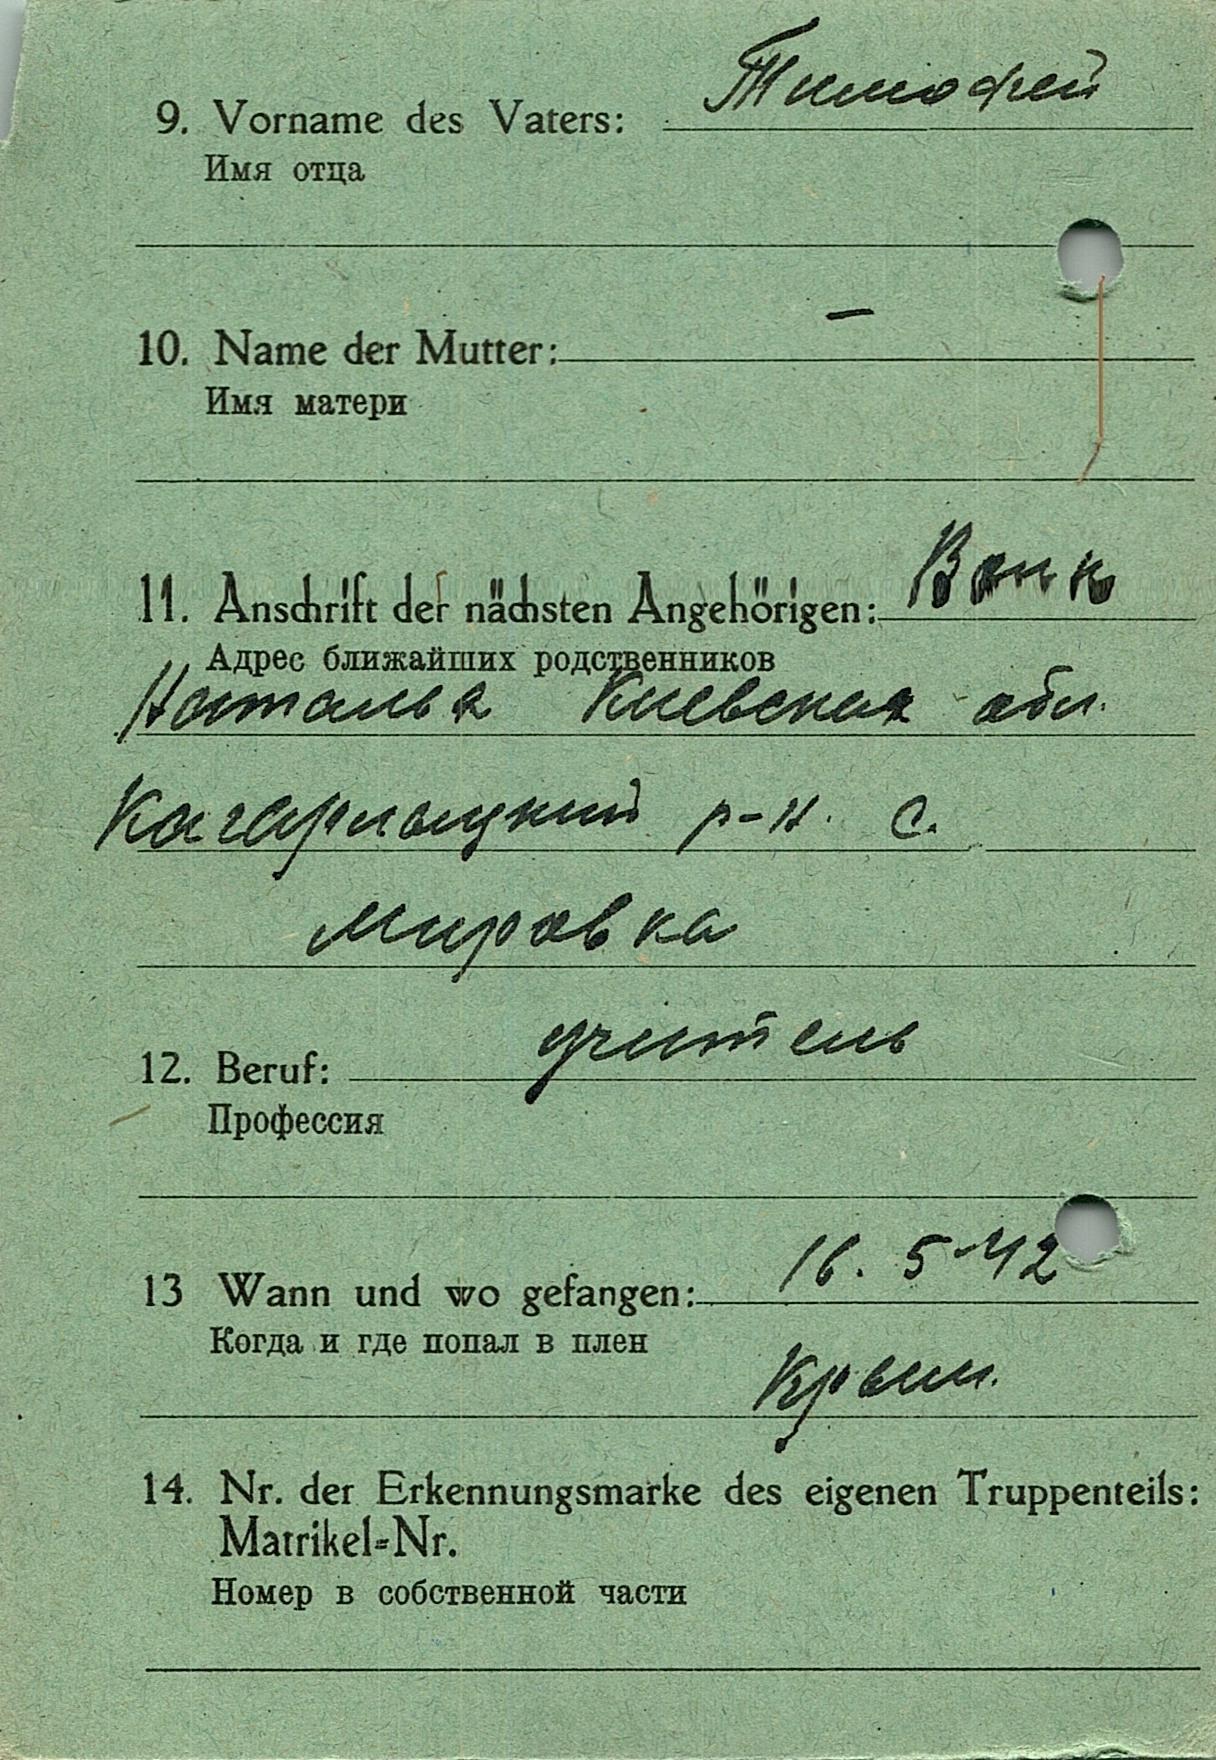 9. Vorname des Vaters: Тимофей
Имя отца
10. Name der Mutter: —
Имя матери
11. Anschrift der nächsten Angehörigen:
Адрес ближайших родственников
Наталья Киевская обл.
Кагарлыцкий р-н. с.
Мировка
12. Beruf: учитель
Профессия
13 Wann und wo gefangen: 16. 5-42
Когда и где попал в плен
Крым.
14. Nr. der Erkennungsmarke des eigenen Truppenteils:
Matrikel-Nr.
Номер в собственной части